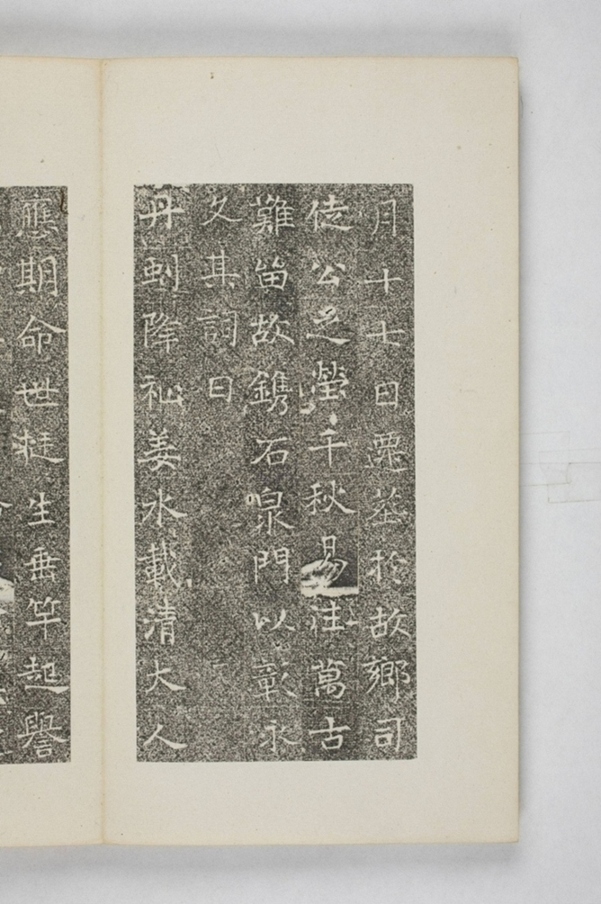 月十七日遷葬於故鄉司
徒公之塋千秋易往萬古
難留故鐫石泉門以彰永
久其詞曰
丹剅降祉姜水載清大人
應期命世挺生垂竿起譽